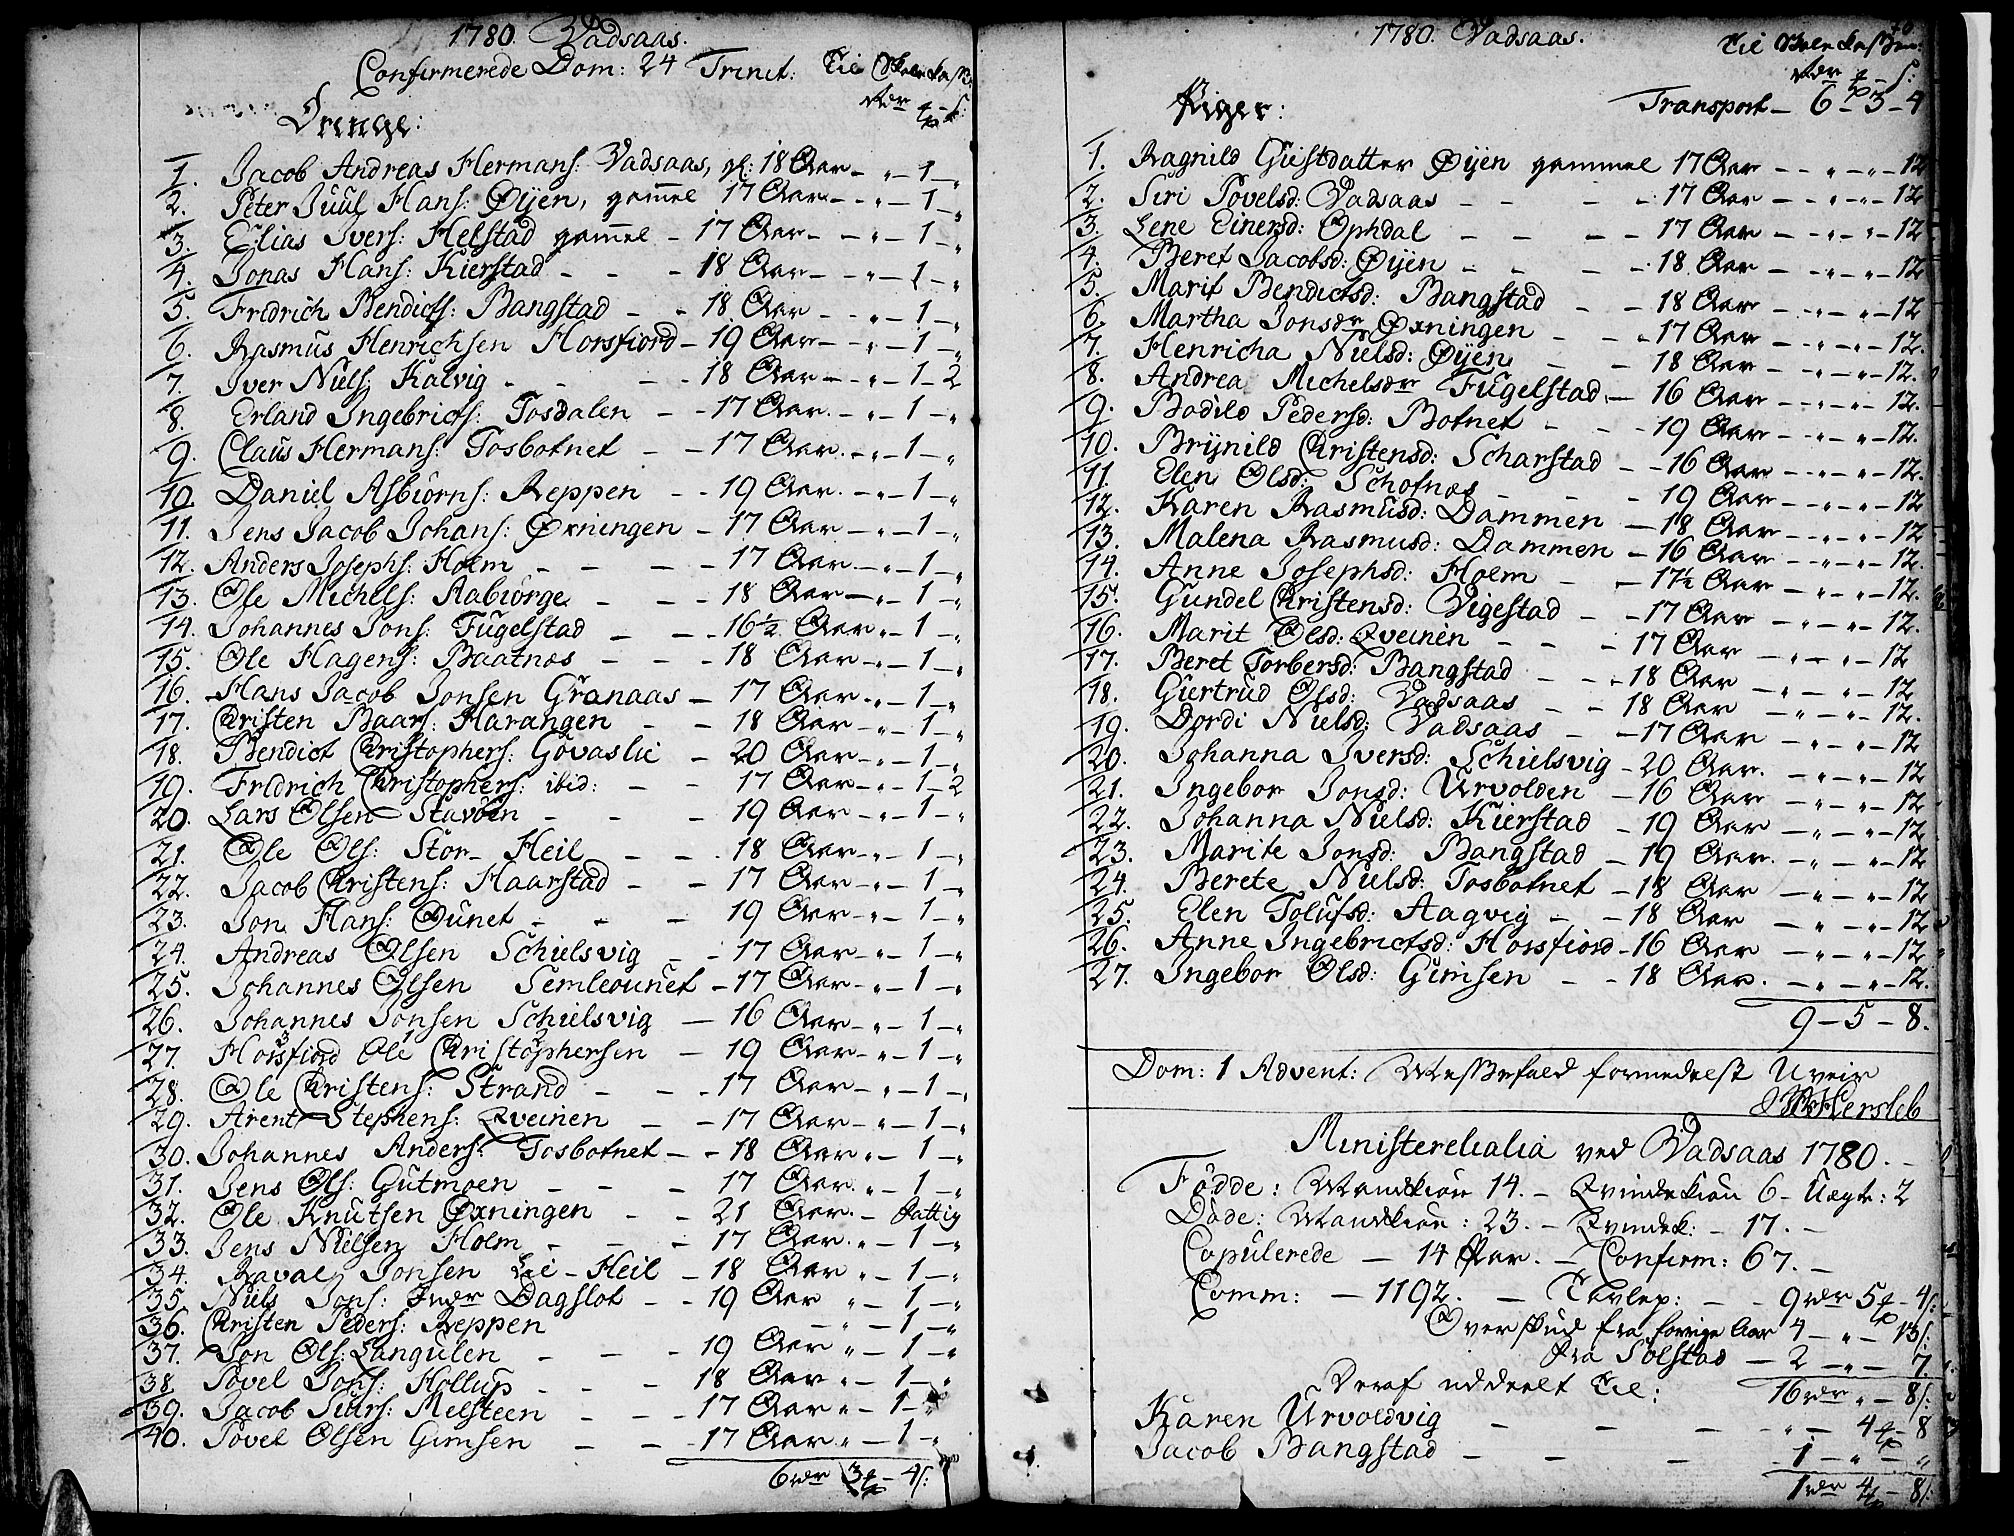 1780. Vadsaas.
Confirmerede Dom: 24 Trinit: til Skole Kaßen
rdr ꝑ – ß:
Drenge:
1. Jacob Andreas Hermans: Vadsaas, gl: 18 Aar – „ – 1 – „
2. Peter Juul Hans: Øÿen, gamel 17 Aar – – „ – 1 – „
3. Elias Ivers: Helstad gamel – 17 Aar – – „ – 1 – „
4. Jonas Hans: Kierstad – – – 18 Aar – – „ – 1 – „
5. Fridrich Bendicts: Bangstad – – 18 Aar – – „ – 1 – „
6. Rasmus Henrichsen Horsfiord – 19 Aar – – „ – 1 – „
7. Iver Niels: Kalvig – – – 18 Aar – – „ – 1 – 2
8. Erland Ingebricts: Tosdalen – – 17 Aar – – „ – 1 – „
9. Claus Hermans: Tosbotnet – – 17 Aar. – „ – 1 – „
10. Daniel Asbiørns: Reppen – – 19 Aar. – „ – 1 – „
11. Jens Jacob Johans: Øxningen – 17 Aar – „ – 1 – „
12. Anders Josephs: Holm – – – – 17 Aar – „ – 1 – „
13. Ole Michels: Aabiørge – – – 18 Aar – „ – 1 – „
14. Johannes Jons: Fugelstad – – – 16½ Aar „ – 1 – „
15. Ole Hagens: Baatnæs – – – 18 Aar – „ – 1 – „
16. Hans Jacob Jonsen Granaas – 17 Aar – „ – 1 – „
17. Christen Baars: Harangen – – 18 Aar – „ – 1 – „
18. Bendict Christophers: Góvaslie – 20 Aar – „ – 1 – „
19. Fridrich Christophers: ibid: – – 17 Aar – „ – 1 – 2
20. Lars Olsen Stavøen – – – 19 Aar – „ – 1 – „
21. Ole Ols: Stor- Heil – – 18 Aar – „ – 1 – „
22. Jacob Christens: Haarstad – – 17 Aar – „ – 1 – „
23. Jon Hans: Øunet – – – 19 Aar – „ – 1 – „
24. Andreas Olsen Schielsvig – – 17 Aar – „ – 1 – „
25. Johannes Olsen Semleøunet – 17 Aar – „ – 1 – „
26. Johannes Jonsen Schielsvig – 16 Aar – „ – 1 – „
27. Horsfiord Ole Christophersen – 19 Aar – „ – 1 – „
28. Ole Christens: Strand – – – 17 Aar – „ – 1 – „
29. Arent Stephens: Qveinen – – 17 Aar – „ – 1 – „
30. Johannes Anders: Tosbotnet – – 18 Aar „ – 1 – „
31. Jens Ols: Gutmoen – – – 17 Aar. „ – 1 – „
32. Ole Knutsen Øxningen – – 21 Aar. – fattig
33. Jens Nielsen Holm – – – 17 Aar. „ – 1 – „
34. Jonsen Lie-Heil – 18 Aar „ – 1 – „
35. Niels Jons: Indr Dagslot – – 19 Aar „ – 1 – „
36. Christen Peders: Reppen – „ – 1 – „
37. Jon Ols: Langulen – – – 19 Aar „ – 1 – „
38. Povel Jons: Hollup – – – 18 Aar „ – 1 – „
39. Jacob Siurs: Melsteen – – – 17 Aar „ – 1 – „
40. Povel Olsen Gimsen – – – 17 Aar „ – 1 – „
6 rdr 3ꝑ – 4ß:
1780. Vadsaas.
til Skole Kaßen:
rdr ꝑ – ß:
Piger: Transport – 6 – 3 – 4
1. Ragnild Giestdatter Øÿen gammel 17 Aar – – „ – „ – 12
2. Siri Povelsd: Vadsaas – – – – 17 Aar – – „ – „ – 12
3. Lene Einersd: Ophdal – – – – 17 Aar – – „ – „ – 12
4. Beret Jacobsd: Øÿen – – – – 18 Aar – – „ – „ – 12
5. Marit Bendictsd: Bangstad – – 18 Aar – – „ – „ – 12
6. Martha Jonsdr Øxningen – – 17 Aar – – „ – „ – 12.
7. Henricha Nielsd: Øÿen – – 18 Aar – – „ – „ – 12.
8. Andrea Michelsdr Fugelstad – 16 Aar – – „ – „ – 12.
9. Bodild Pedersd: Botnet – – – 19 Aar – – „ – „ – 12.
10. Brÿnild Christensd: Scharstad – – 16 Aar – – „ – „ – 12.
11. Elen Olsd: Schotnæs – – – 19 Aar – – „ – „ – 12
12. Karen Rasmusd: Dammen – 18 Aar – – „ – „ – 12
13. Malena Rasmusd: Dammen – 16 Aar – – „ – „ – 12.
14. Anne Josephsd: Holm – – 17½ Aar – – „ – „ – 12.
15. Gundel Christensd: Vigestad – – 17 Aar – „ – „ – 12.
16. Marit Olsd: Qveinen – – – 17 Aar – „ – „ – 12
17. Beret Torbersd: Bangstad – – – 18 Aar – „ – „ – 12
18. Giertrud Olsd: Vadsaas – – 18 Aar – „ – „ – 12.
19. Dordi Nielsd: Vadsaas – – 17 Aar – „ – „ – 12
20. Johanna Iversd: Schielsvig – 20 Aar. – „ – „ – 12
21. Ingebor Jonsd: Urvolden – 16 Aar – „ – „ – 12
22. Johanna Nielsd: Kierstad – 19 Aar – „ – „ – 12
23. Marite Jonsd: Bangstad – 19 Aar. – „ – „ – 12
24. Berete Nielsd: Tosbotnet – 18 Aar – „ – „ – 12
25. Elen Tolufsd: Aagvig – – 18 Aar – „ – „ – 12
26. Anne Ingebrictsd: Horsfiord – 16 Aar – „ – „ – 12
27. Ingebor Olsd: Gimsen – – 18 Aar. – „ – „ – 12.
9 – 5 – 8.
Dom: 1 Advent: Meßefald formedelst Uveir
Hersleb
Ministerelialia ved Vadsaas 1780.
Fødde: Mandkiøn 14. – Qvindekiøn 6 – Uægte: 2
Døde: Mandkiøn: 23. – Qvindek: – 17. –
Copulerede – 14 Par. – Confirm: 67. –
Comm: – 1192. – Tavlep: – – 9 rdr 5ꝑ – 4ß:
Overskud fra forrige Aar 4 – „ – 13ß:
fra Solstad – 2 – „ – 7.
Deraf uddeelt til: 16 rdr „ – 8ß:
Karen Urvoldvig – – – „ – 4ꝑ – 8
Jacob Bangstad – – – – 1 – „ – „
1 rdr 4ꝑ – 8ß: